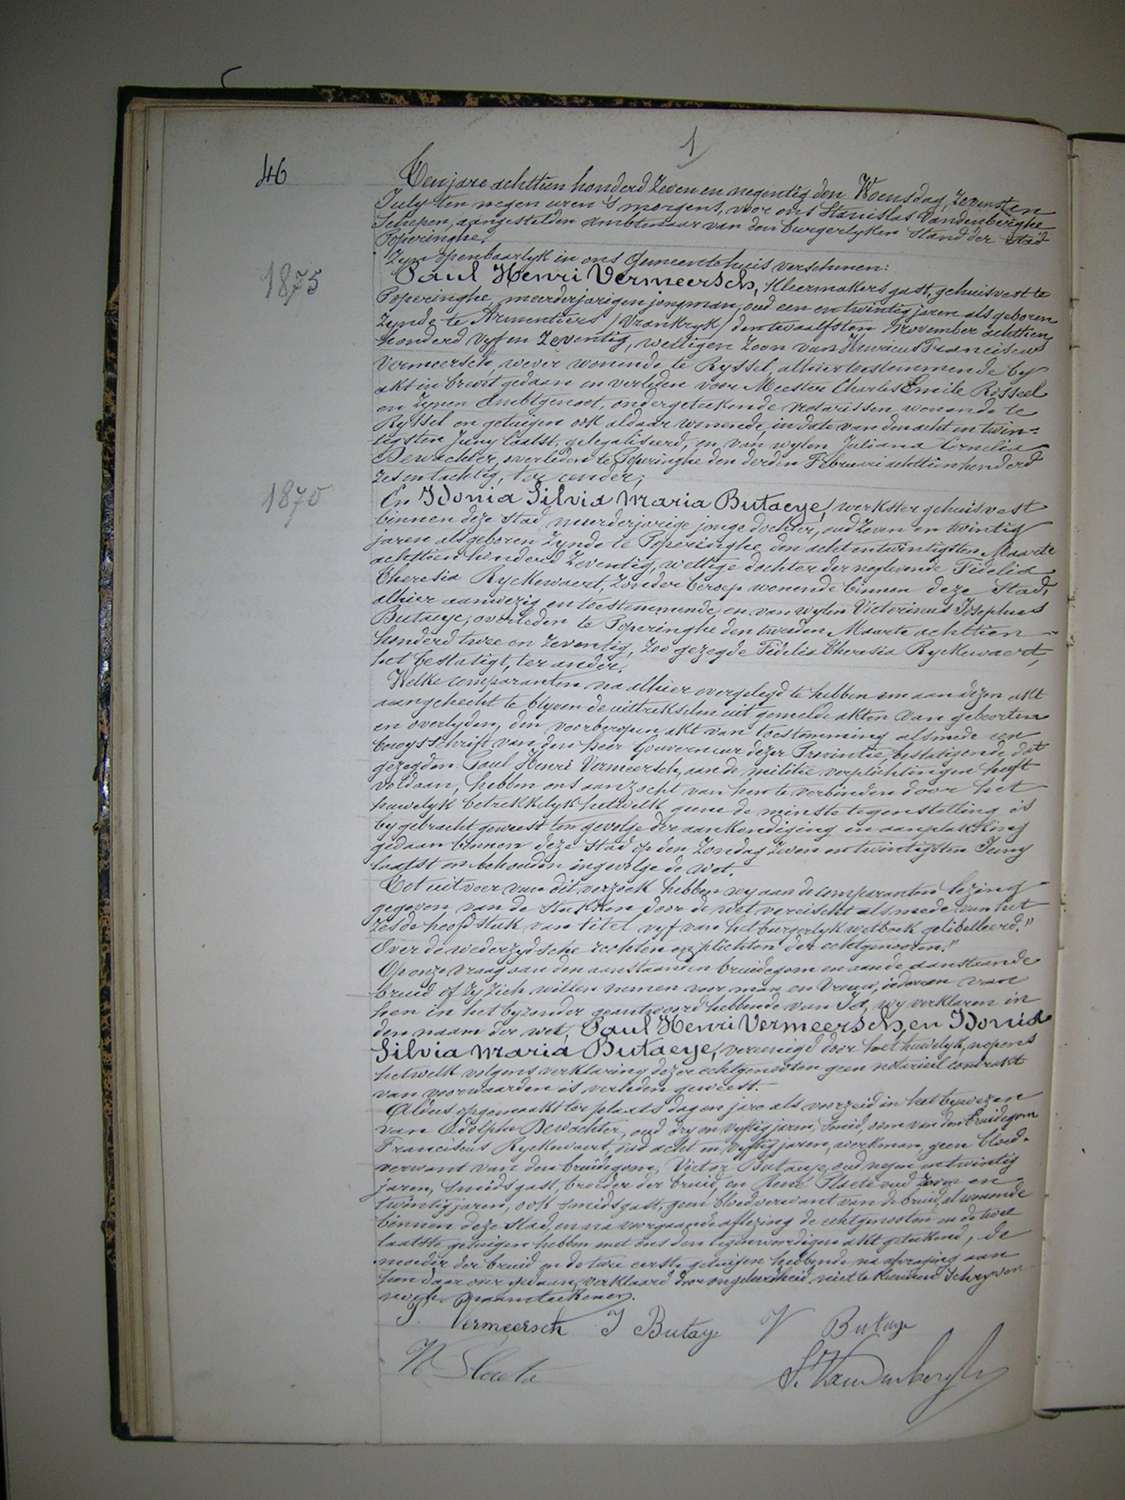 1
46
Ten jare achttien honderd zeven en negentig den Woensdag, zevensten
July ten negen uren 's morgens, voor ons Stanislas Vandenberghe
Schepen, aangestelden Ambtenaar van den burgerlyken Stand der stad
Poperinghe,
Zyn openbaarlyk in ons Gemeentehuis verschenen:
1875
Paul Henri Vermeersch, kleermakers gast, gehuisvest te
Poperinghe, meerderjarigen jongman, oud een en twintig jaren als geboren
zynde te Armentiers (Vrankryk) den twaalfsten November achttien
honderd vyf en zeventig, wettigen zoon van Henricus Franciscus
Vermeersch, wever wonende te Ryssel, alhier toestemmende by
akt in brevet gedaan en verleden voor Meester Charles Emile Rossel
en zynen Ambtgenoot, ondergeteekende notarissen wonende te
Ryssel en getuigen ook aldaar wonende, in date van den acht en twin-
tigsten Juny laatst, gelegaliseerd, en van wylen Juliana Cornelia
Dewachter, overleden te Poperinghe den derden Februari achttien honderd
zes en tachtig, ter eender;
1870
En Idonia Silvia Maria Butaeye, werkster gehuisvest
binnen deze stad, meerderjarige jonge dochter, oud zeven en twintig
jaren als geboren zynde te Poperinghe den acht en twintigsten Maarte
achttien honderd zeventig, wettige dochter der nog levende Fidelia
Theresia Ryckewaert, zonder beroep wonende binnen deze Stad,
alhier aanwezig en toestemmende, en van wylen Victorinus Josephus
Butaeye, overleden te Poperinghe den tweeden Maarte achttien
honderd twee en zeventig, zoo gezegde Fidelia Theresia Ryckewaert,
het bestatigt, ter ander.
Welke comparanten na alhier overgelegd te hebben om aan dezen akt
aangehecht te blyven de uittrekselen uit gemelde akten van geboorten
en overlyden, den voorberoepen akt van toestemming alsmede een
bewysschrift van den heer Gouverneur dezer Provintie, bestatigende dat
gezegden Paul Henri Vermeersch, aan de militie verplichtingen heeft
voldaan, hebben ons aanzocht van hen te verbinden door het
huwelyk betrekkelyk hetwelk geene de minste tegenstelling is
bygebracht geweest ten gevolge der aankondiging en aanplakking
gedaan binnen deze Stad op den Zondag zeven en twintigsten Juny
laatst en behouden ingevolge de wet.
Tot uitvoer van dit verzoek hebben wy aan de comparanten lezing
gegeven van de stukken door de wet vereischt alsmede van het
zesde hoofdstuk van titel vyf van het burgerlyk wetboek getibelleerd "
Over de wederzydsche rechten en plichten der echtgenooten."
Op onze vraag aan den aanstaanden bruidegom en aan de aanstaande
bruid of zy zich willen nemen voor man en vrouw, iedereen van
hen in het byzonder geantwoord hebbende van Ja, wy verklaren in
den naam der wet, Paul Henri Vermeersch, en Idonia
Silvia Maria Butaeye, vereenigd door het huwelyk, nopens
hetwelk volgens verklaring dezer echtgenooten geen notarieel contrakt
van voorwaarden is verleden geweest.
Aldus opgemaakt ter plaats dag en jare als voorzeid in het bywezen
van Adolphe Dewachter, oud dry en vyftig jaren, smid, oom van den bruidegom
Franciscus Ryckewaert, oud acht en vyftig jaren, werkman, geen bloed-
verwant van den bruidegom, Victor Butaeye, oud negen en twintig
jaren, smidsgast, broeder der bruid, en René Slaete oud zeven en
twintig jaren, ook smidsgast, geen bloedverwant van de bruid, al wonende
binnen deze stad, en na voorgaande aflezing de echtgenooten en de twee
laatste getuigen hebben met ons den tegenwoordigen akt geteekend, de
moeder der bruid en de twee eerste getuigen hebbende na afvraging aan
hun daar over gedaan, verklaard door ongeleerdheid niet te kunnen schryven
noch naamteekenen.
P. Vermeersch I Butaye V Butaye
R Slaete S. Vandenberghe